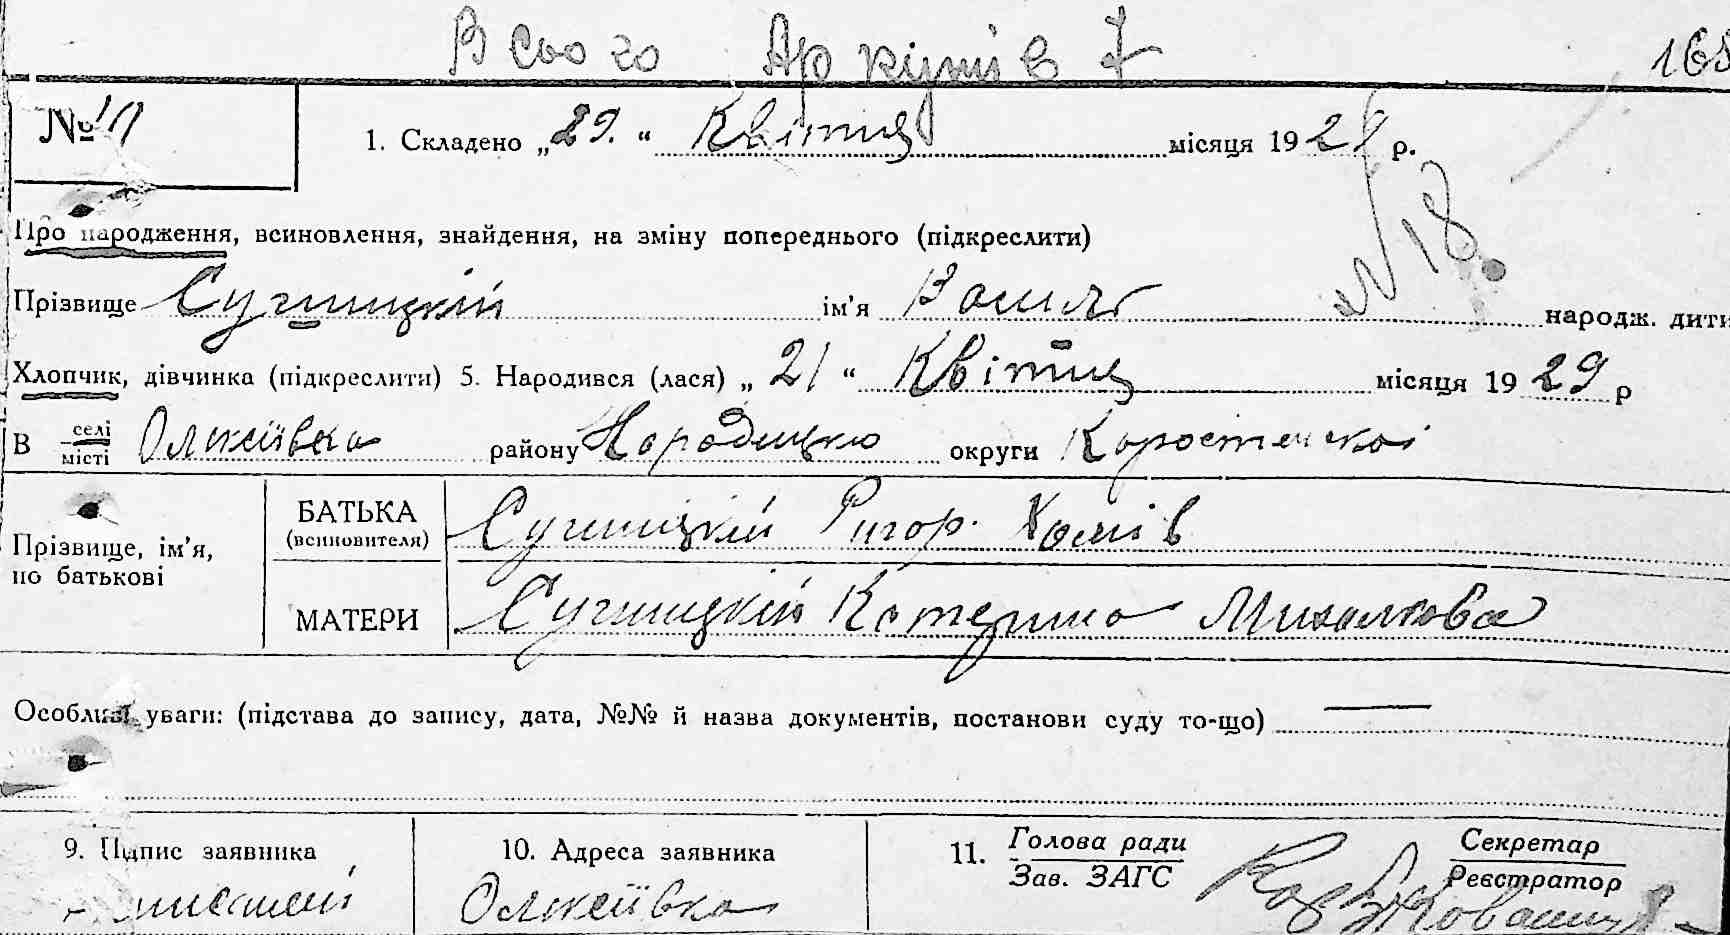 Всього Аркушів 7 165
№ 17 1. Складено „29.“ Квітця місяця 1929 р.
№ 18
Про народження, всиновлення, знайдення, на зміну попереднього (підкреслити)
Прізвище Сушицкій ім’я Василь народж. дити
Хлопчик, дівчинка (підкреслити) 5. Народився (лася) „ 21 “ Квітця місяця 1929 р
В селі місті Олексіївка району Народицько округи Коростенскоі
Прізвище, ім’я, по батькові
БАТЬКА Сушицкій Ригор. Хомів
(всиновителя)
МАТЕРИ Сушицкій Катерина Михалкова
Особливі уваги: (підстава до запису, дата, №№ й назва документів, постанови суду то-що)
9. Підпис заявника 10. Адреса заявника 11. Голова ради Секретар
Зав. ЗАГС Реєстратор
Олексіївка